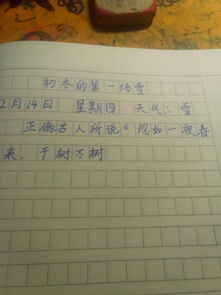 初冬的第一场雪
2月14日 星期四 天气：雪
正像古人所说“忽如一夜春
来，千树万树